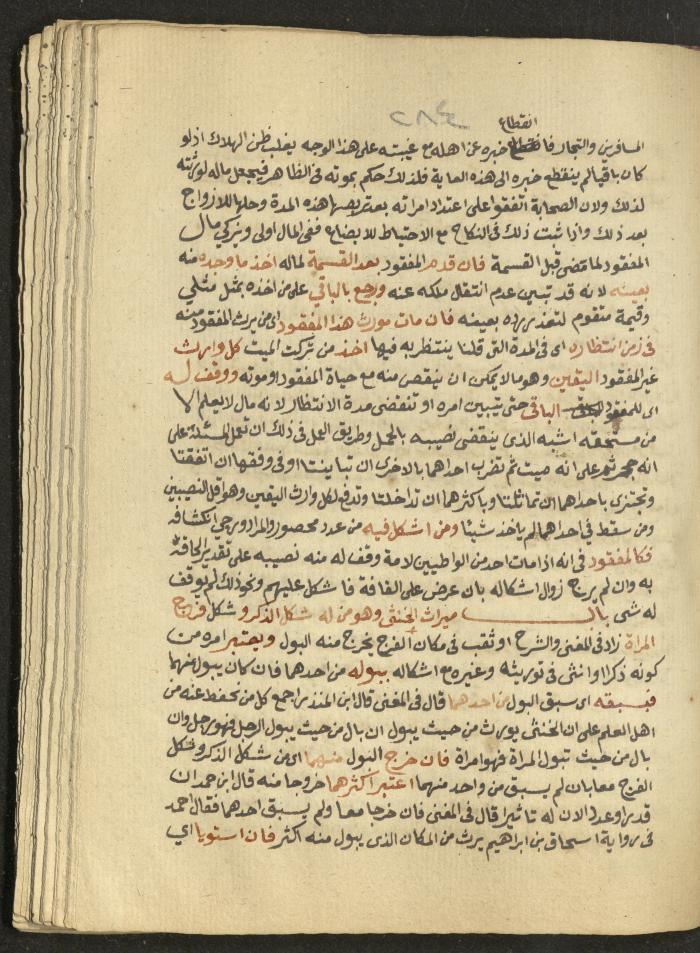 انقطاع
المسافرين والتجار فانقطع خبره عن اهله مع غيبته على هذا الوجه يغلب ظن الهلاك اذ لو
كان باقيا لم ينقطع خبره الى هذه الغاية فلذلك حكم بموته في الظاهر فيجعل ماله لورثته
لذلك ولان الصحابة اتفقوا على اعتداد امراته بعد تربصها هذه المدة وحلها للازواج
بعد ذلك واذا ثبت ذلك في النكاح مع الاحتياط للابضاع ففي المال اولى ويزكي مال
المفقود لما مضى قبل القسمة فان قدم المفقود بعد القسمة لماله اخذ ما وجده منه
بعينه لانه قد تبين عدم انتقال ملكه عنه ورجع بالباقي على من اخذه بمثل مثلي
وقيمة متقوم لتعذر رده بعينه فان مات مورث هذا المفقود اي من يرث المفقود منه
في زمن انتظاره اي في المدة التي قلنا ينتظر به فيها اخذ من تركت الميت كل وارث
غير المفقود اليقين وهو ما لا يمكن ان ينقص منه مع حياة المفقود او موته ووقف له
اي للمفقود الباقي حتى يتبين امره او تنقضي مدة الانتظار لانه مال لا يعلم الا
من مستحقه اشبه الذي ينقضي نصيبه بالحمل وطريق العمل في ذلك ان تعمل المسئلة على
انه حي ثم على انه ميت ثم تضرب احداهما بالاخرى ان تباينتا او في وفقها ان اتفقتا
وتجتزي باحداهما ان تماثلتا وباكثرهما ان تداخلتا وتدفع لكل وارث اليقين وهو اقل النصيبين
ومن سقط في احداهما لم ياخذ شيئا ومن اشكل فيه من عدد محصور والمراد ورجي انكشافه
فكالمفقود في انه اذا مات احد من الواطيين لامة وقف له منه نصيبه على تقدير الحاقه
به وان لم يرج زوال اشكاله بان عرض على القافة فاشكل عليهم ونحو ذلك لم يوقف
له شي باب ميراث الخنثى وهو من له شكل الذكر وشكل فرج
المراة زاد في المغني والشرح او ثقب في مكان الفرج يخرج منه البول ويعتبر امره من
كونه ذكرا او انثى في توريثه وغيره مع اشكاله ببوله من احدهما فان كان يبول منهما
فبسبقه اي سبق البول من احدهما قال في المغني قال ابن المنذر اجمع كل من يحفظ عنه من
اهل العلم على ان الخنثى يورث من حيث يبول ان بال من حيث يبول الرجل فهو رجل وان
بال من حيث تبول المراة فهو امراة فان خرج البول منهما اي من شكل الذكر وشكل
الفرج معا بان لم يسبق من واحد منهما اعتبر اكثرهما خروجا منه قال ابن حمدان
قدرا وعددا لان له تاثيرا قال في المغني فان خرجا معا ولم يسبق احدهما فقال احمد
في رواية اسحاق بن ابراهيم يرث من المكان الذي يبول منه اكثر فان استويا اي